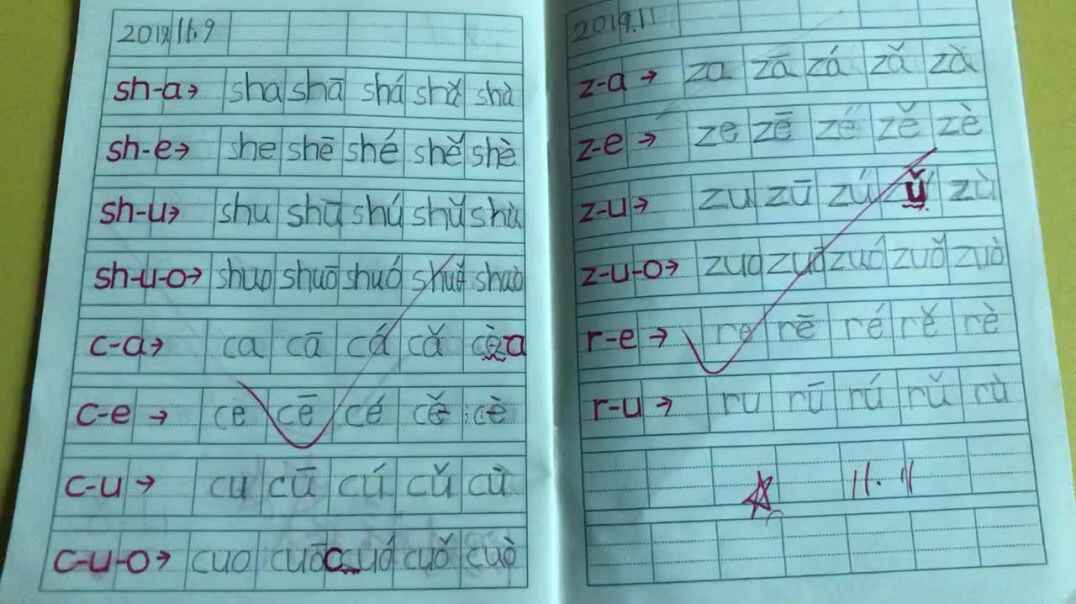 2019.11.9
sh-a→ sha shā shá shǎ shà
sh-e→ she shē shé shě shè
sh-u→ shu shū shú shǔ shù
sh-u-o→ shuo shuō shuó shuǒ shuò
c-a→ ca cā cá cǎ cè a
c-e→ ce cē cé cě cè
c-u→ cu cū cú cǔ cù
c-u-o→ cuo cuō cuó cuǒ cuò
2019.11
z-a→ za zā zá zǎ zà
z-e→ ze zē zé zě zè
z-u→ zu zū zú zǔ zù
z-u-o→ zuo zuō zuó zuǒ zuò
r-e→ re rē ré rě rè
r-u→ ru rū rú rǔ cù
11.11